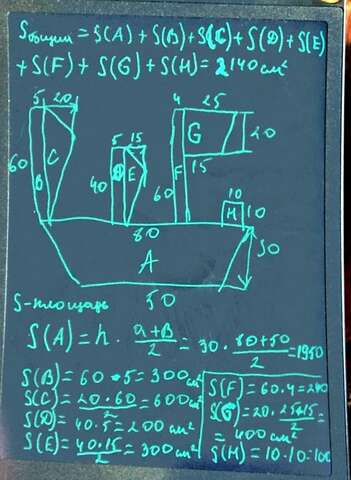 Sобщий = S(A) + S(B) + S(C) + S(D) + S(E)
+ S(F) + S(G) + S(H) = 2140 см²
5 20
4 25
60
B
C
5 15
40
D
E
60
F
G
20
15
10
H
10
80
A
30
50
S-площадь
S(A) = h · a+B/2 = 30 · 80+50/2 = 1950
S(B) = 60 · 5 = 300 см²
S(C) = 20·60/2 = 600 см²
S(D) = 40·5 = 200 см²
S(E) = 40·15/2 = 300 см²
S(F) = 60·4 = 240
S(G) = 20· 25+15/2 =
= 400 см²
S(H) = 10·10 = 100